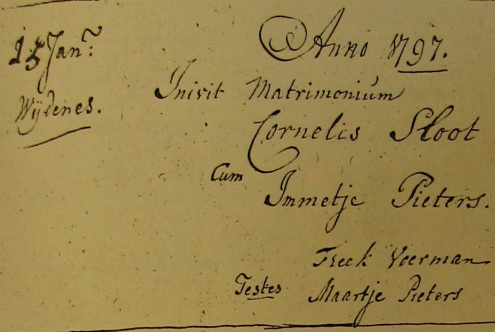 15 Jan.r
Wijdenes.
Anno 1797.
Inivit Matrimonium
Cornelis Sloot
Cum
Immetje Pieters.
Freek Veerman
Testes Maartje Pieters